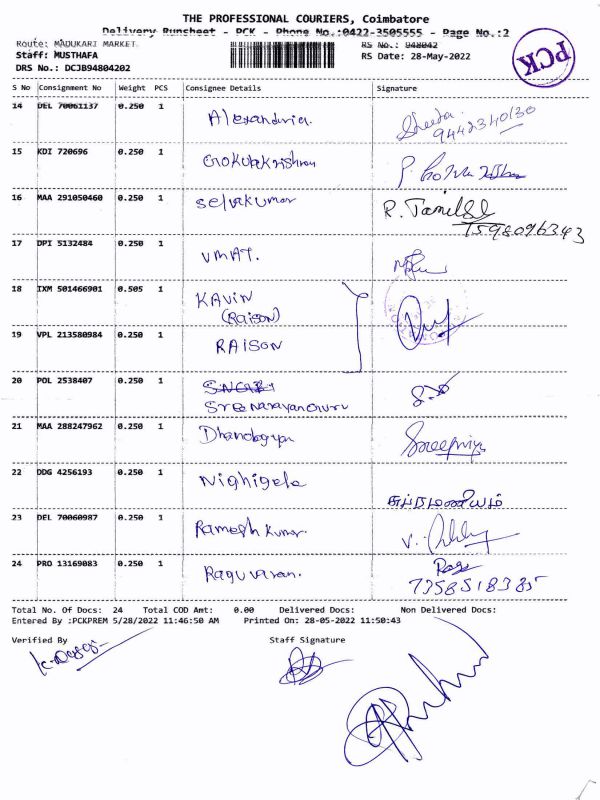 THE PROFESSIONAL COURIERS, Coimbatore
Delivery Runsheet - PCK - Phone No.:0422-3505555 - Page No.:2
Route: MADUKARI MARKET RS No.: 948042
Staff: MUSTHAFA RS Date: 28-May-2022
DRS No.: DCJB94804202
PCK
S No Consignment No Weight PCS Consignee Details Signature
14 DEL 70061137 0.250 1 Alexandria.
9442340130
15 KDI 720696 0.250 1 Gokulakrishnan
16 MAA 291050460 0.250 1 Selvakumar R. Tamil
7598096343
17 DPI 5132484 0.250 1 UMA T.
18 IXM 501466901 0.505 1 KAVIN
(RAISON)
19 VPL 213580984 0.250 1 RAISON
20 POL 2538407 0.250 1
Sreenarayanguru
21 MAA 288247962 0.250 1 Sreepriya
22 DDG 4256193 0.250 1 Nighigela
சுப்ரமணியம்
23 DEL 70060987 0.250 1 Ramesh Kumar
24 PRO 13169083 0.250 1 Raguvaran.
7358518385
Total No. Of Docs: 24 Total COD Amt: 0.00 Delivered Docs: Non Delivered Docs:
Entered By :PCKPREM 5/28/2022 11:46:50 AM Printed On: 28-05-2022 11:50:43
Verified By Staff Signature